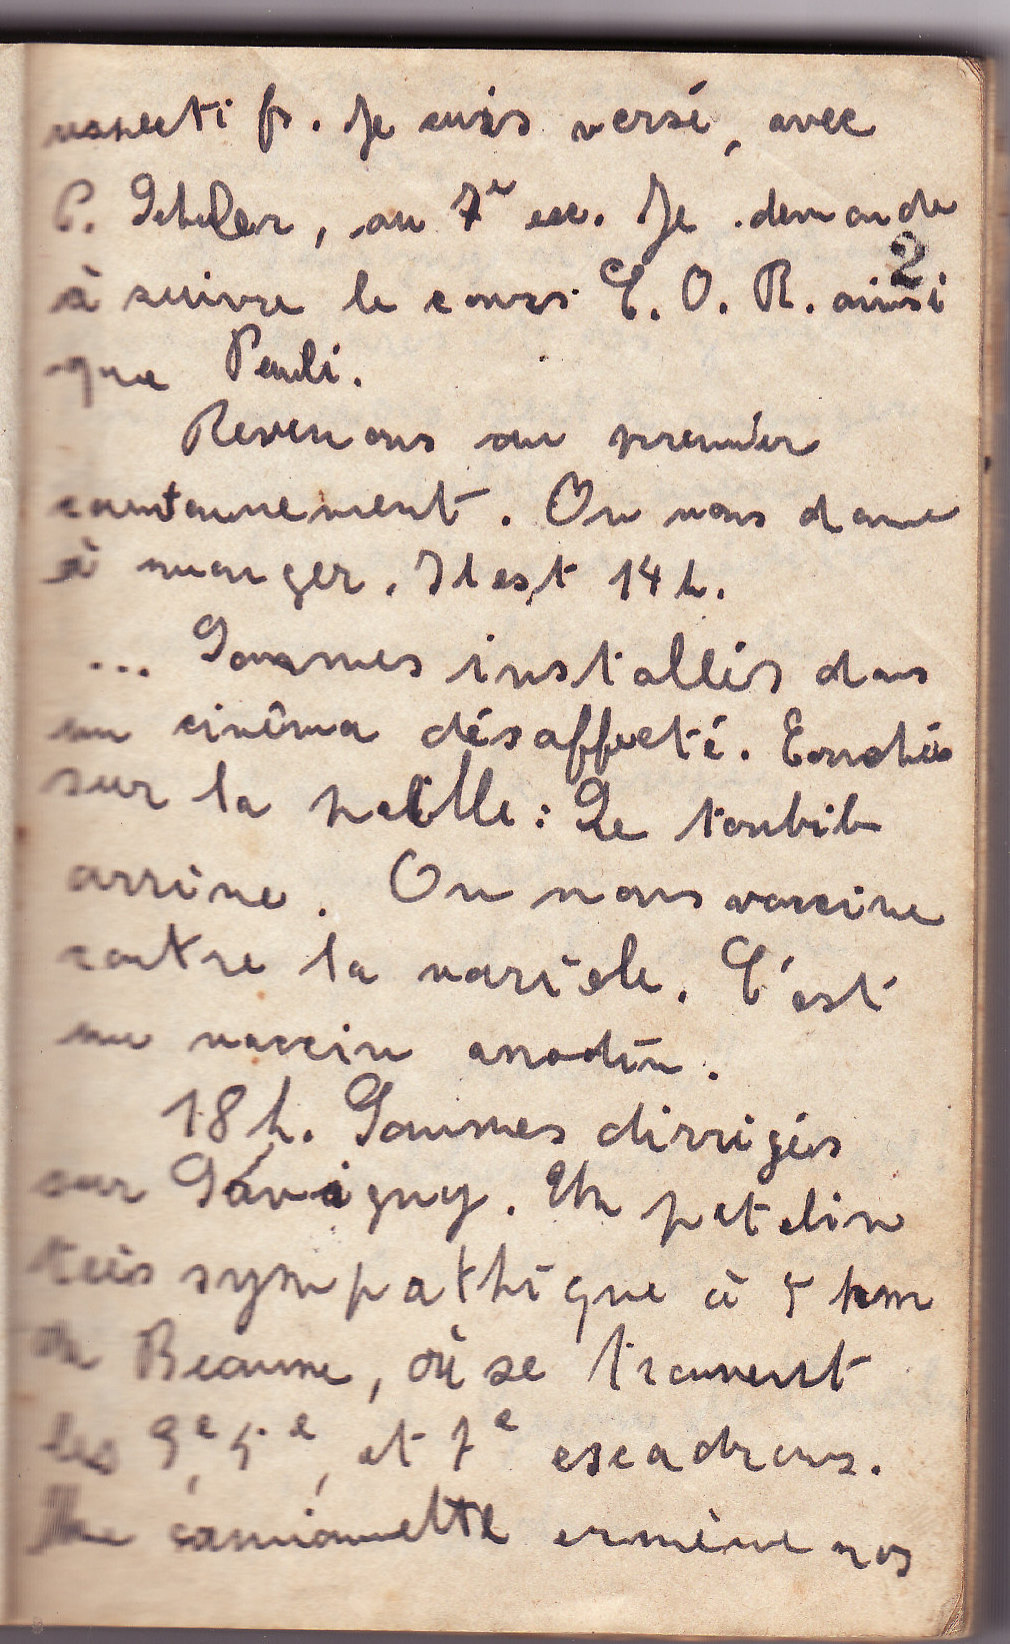 respectifs. Je suis versé, avec
P. , au 7e esc. Je demande
2
à suivre le cours E. O. R. ainsi
que Pauli.
Revenons au premier
cantonnement. On nous donne
à manger. Il est 14 h.
... Sommes installés dans
un cinéma désaffecté. Couchés
sur la paille : Le toubib
arrive. On nous vaccine
contre la variole. C'est
un vaccin anodin.
18 h. Sommes dirrigés
sur Savigny. Un patelin
très sympathique à 5 km
de Beaune, où se trouvent
les 5e, et 7e escadrons.
Une camionnette emmène nos